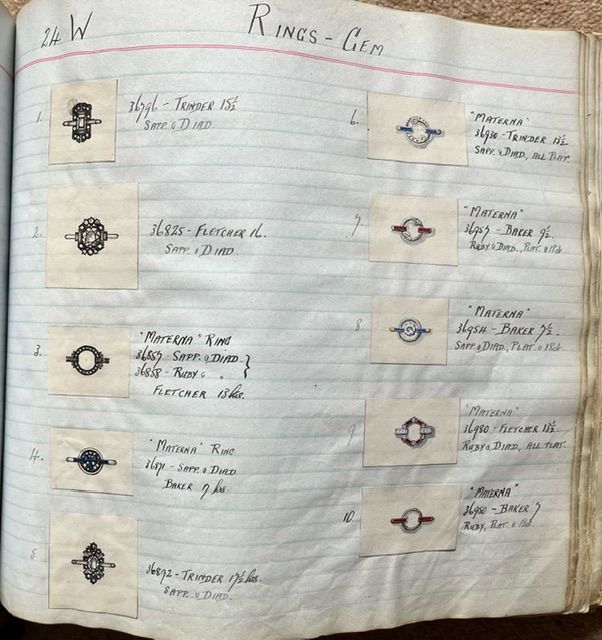 24 W
RINGS - GEM
1.
36796 - TRINDER 15½
SAPP. & DIAD.
2.
36825 - FLETCHER 16.
SAPP. & DIAD.
3.
"MATERNA" RING
36857 SAPP. & DIAD.
36858 - RUBY & "
FLETCHER 13 hrs.
4.
"MATERNA" RING
SAPP. & DIAD
BAKER 7 hrs
5.
36892 - TRINDER 17½ hrs.
SAPP. & DIAD.
6.
"MATERNA"
36930 - TRINDER 13½
SAPP. & DIAD, ALL PLAT.
7.
"MATERNA"
36957 - BAKER 9½
RUBY & DIAD., PLAT. & 18ct.
8
"MATERNA"
36954 - BAKER 7½
SAPP. & DIAD., PLAT & 18ct.
9.
"MATERNA"
36980 - FLETCHER 13½
RUBY & DIAD, ALL PLAT.
10.
"MATERNA"
36950 - BAKER 7
RUBY, PLAT. & 18ct.